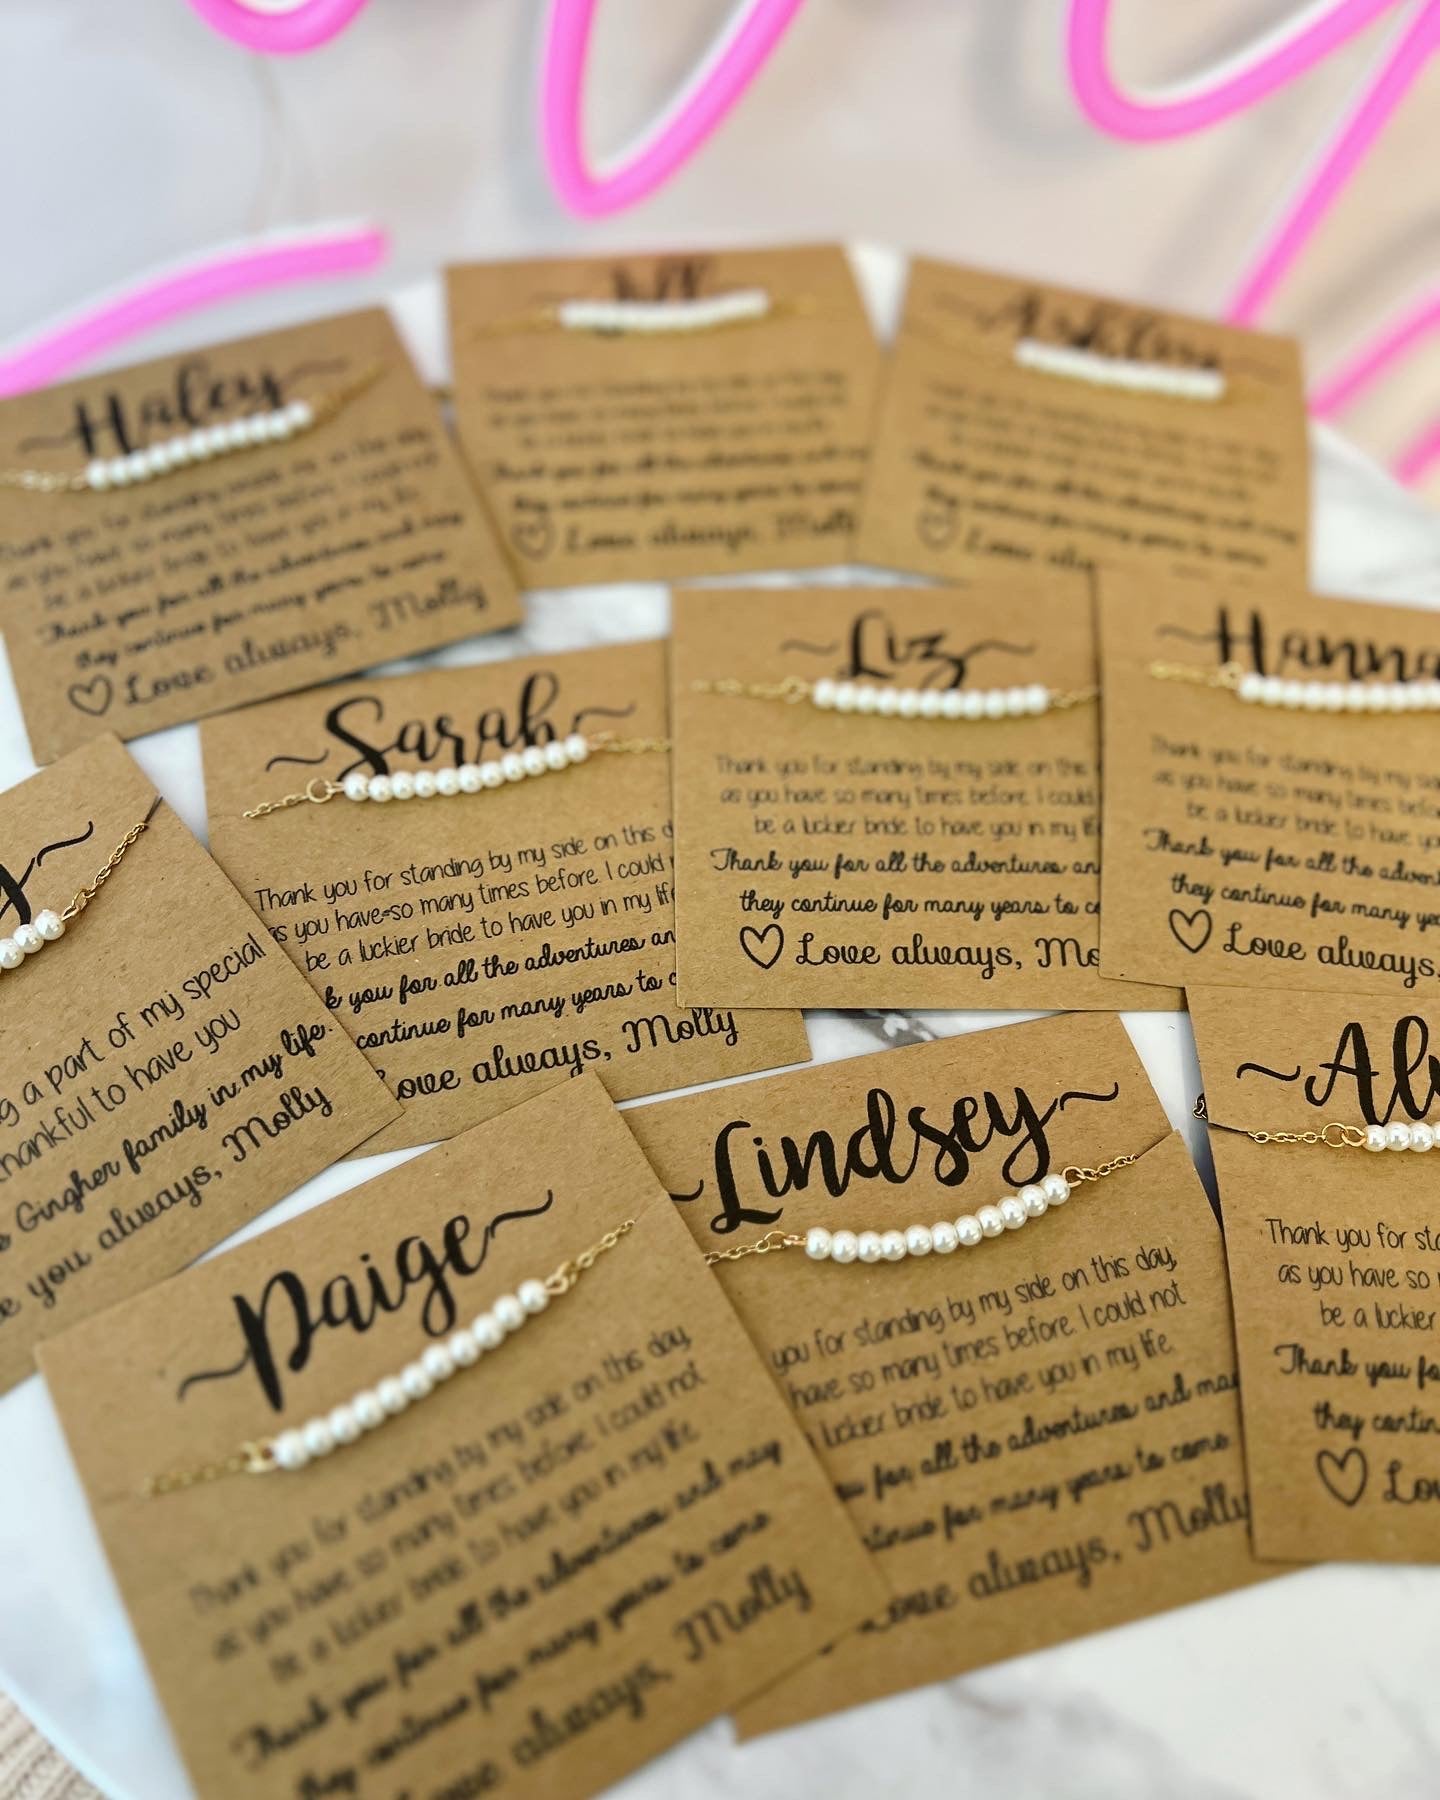 Haley
Thank you for standing
as you have so many times before. I could not
be a luckier bride to have you in my life.
Thank you for all the adventures and may
they continue for many years to come
Love always, Molly
Thank you for all the adventures and
they continue for many years to come
Love always, Molly
Ashley
Love
Sarah
Thank you for standing by my side on this d
as you have so many times before. I could
be a luckier bride to have you in my lif
k you for all the adventures an
continue for many years to c
Love always, Molly
Liz
Thank you for standing by my side on this
as you have so many times before. I could
be a luckier bride to have you in my li
Thank you for all the adventures an
they continue for many years to co
Love always, Mo
Hanna
Thank you for standing by my side
as you have so many times befo
be a luckier bride to have yo
Thank you for all the advent
they continue for many ye
Love always,
y
g a part of my special
thankful to have you
Gingher family in my life.
e you always, Molly
Paige
Thank you for standing by my side on this day,
as you have so many times before. I could not
be a luckier bride to have you in my life
Thank you for all the adventures and may
they continue for many years to come
Love always, Molly
Lindsey
you for standing by my side on this day,
have so many times before. I could not
luckier bride to have you in my life.
you for all the adventures and may
ntinue for many years to come
Love always, Molly
Al
Thank you for sta
as you have so
be a luckier
Thank you fo
they contin
Lov